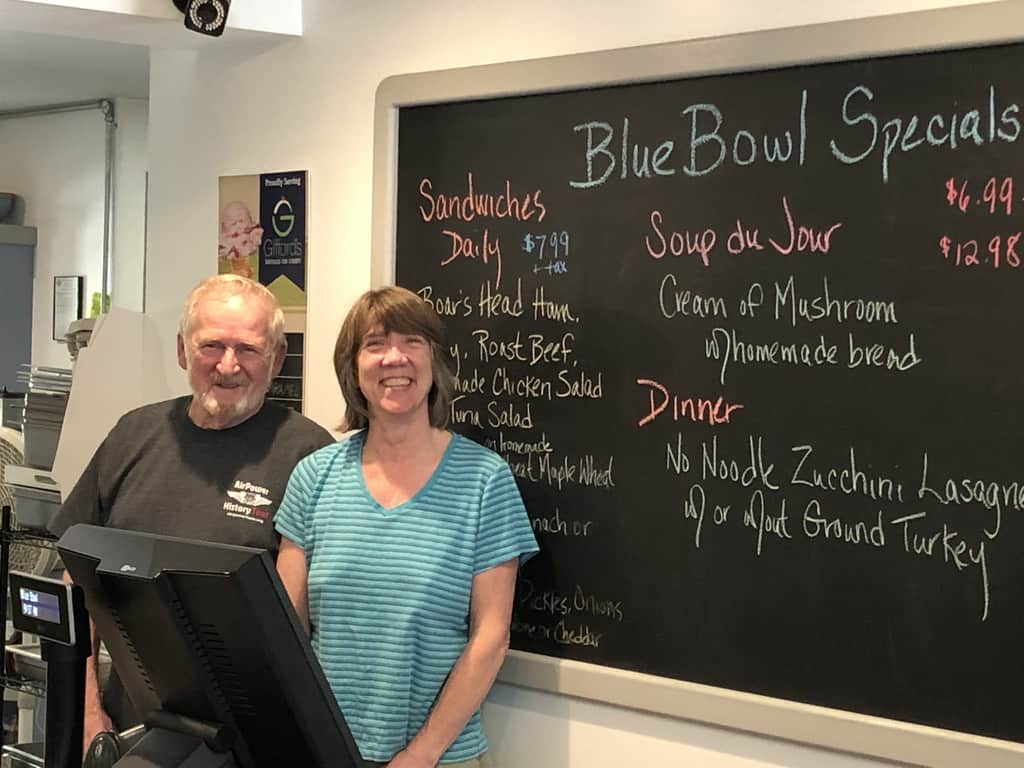 Blue Bowl Specials
Sandwiches
Daily $7.99
+ tax
Boar's Head Ham,
Roast Beef,
Chicken Salad
Tuna Salad
on homemade
Maple Wheat
or
Pickles, Onions
or Cheddar
$6.99
Soup du Jour
$12.98
Cream of Mushroom
w/homemade bread
Dinner
No Noodle Zucchini Lasagna
w/ or w/out Ground Turkey
Proudly Serving
G
Gifford's
famous ice cream
AirPower
History Tour
Blue Bowl